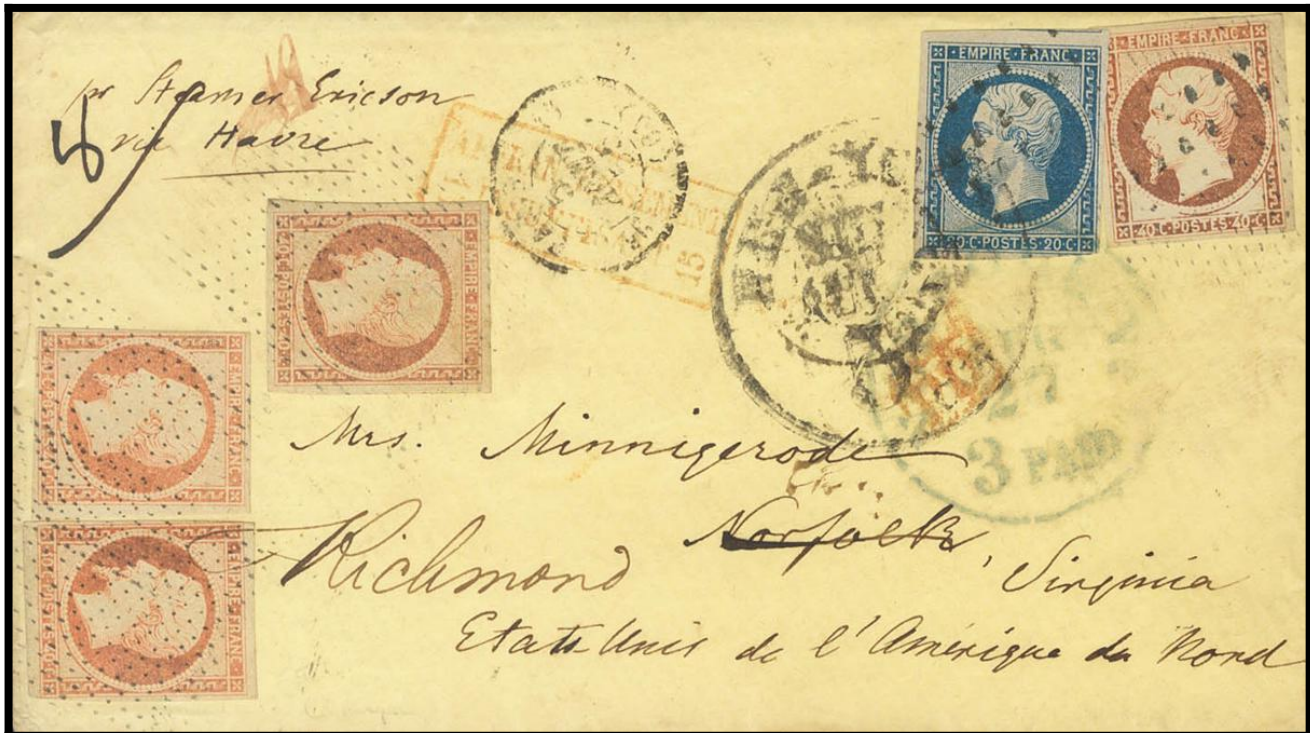 pr Steamer Ericson
via Havre
EMPIRE·FRANC·
20·C·POSTES·20·C·
EMPIRE·FRANC·
40·C·POSTES·40·C·
EMPIRE·FRANC·
40·C·POSTES·40·C·
EMPIRE·FRANC·
EMPIRE·FRANC·
NEW-YO
15
27
3 PAID
Mrs. Minnigerode
Norfolk, Virginia
Richmond
Etats Unis de l'Amérique du Nord